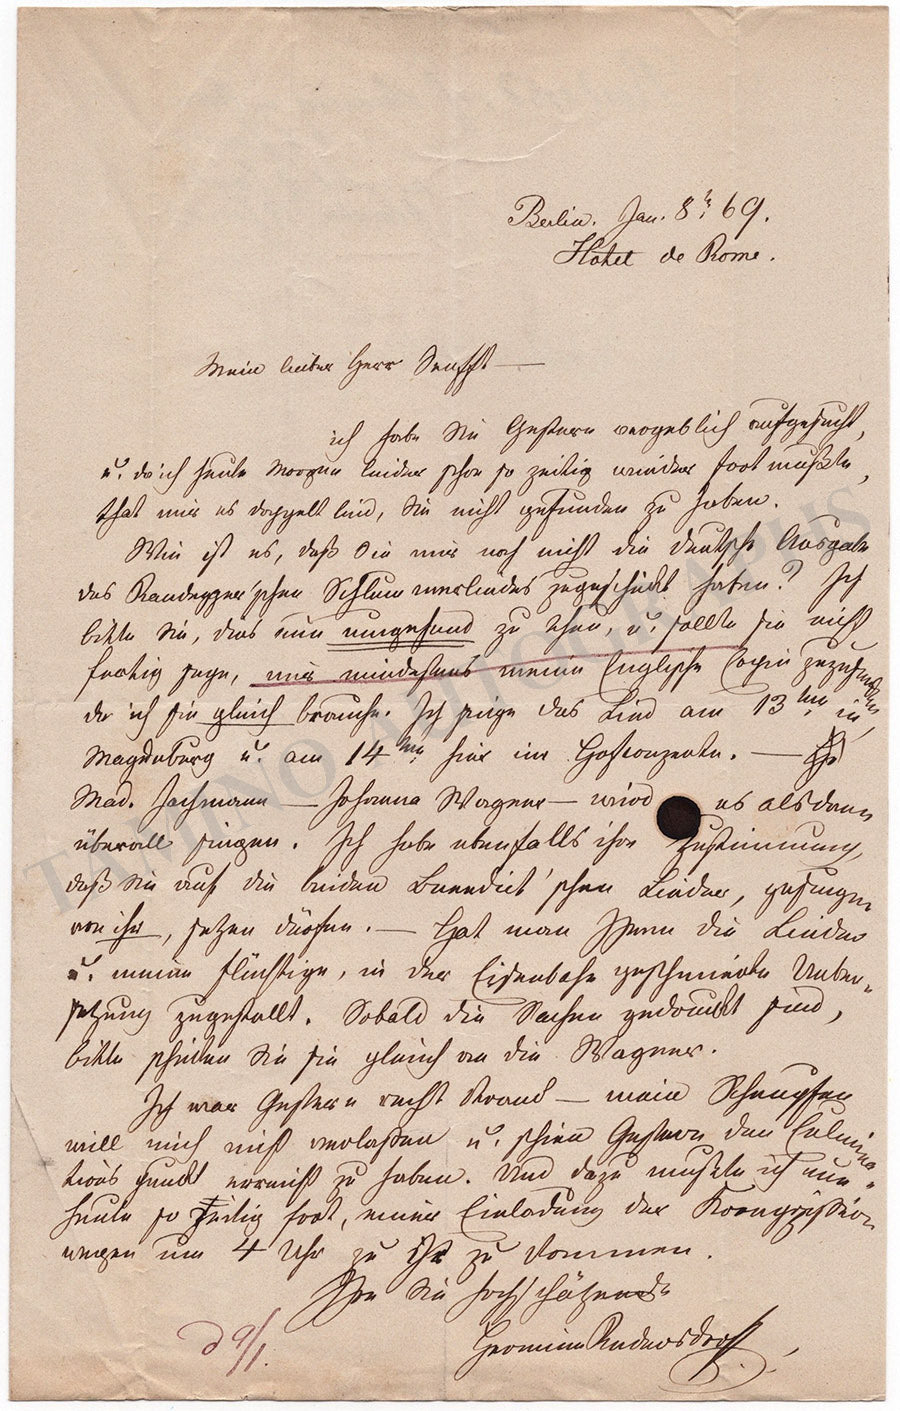 Berlin. Jan. 8t. 69.
Hôtel de Rome.
Mein lieber Herr Senfft —
ich habe Sie Gestern vergeblich aufgesucht,
u. da ich heute Morgen leider schon so zeitig wieder fort mußte,
that mir es doppelt leid, Sie nicht gefunden zu haben.
Wie ist es, daß Sie mir noch nicht die deutsche Ausgabe
des Randegger'schen Schlummerliedes zugeschickt haben? Ich
bitte Sie, dies nun umgehend zu thun, u. sollte sie nicht
fertig sein, mir mindestens meine Englische Copie zuzusenden
da ich sie gleich brauche. Ich singe das Lied am 13ten in
Magdeburg u. am 14ten hier im Hofconzerte. —
Mad. Jachmann — Johanna Wagner — wird es alsdann
überall singen. Ich habe ebenfalls ihre Zustimmung,
daß Sie auf die beiden Benedict'schen Lieder, gesungen
von ihr, setzen dürfen. — Hat man Ihnen die Lieder
u. meine flüchtige, in der Eisenbahn geschmierte Ueber-
setzung zugestellt. Sobald die Sachen gedruckt sind,
bitte schicken Sie sie gleich an die Wagner.
Ich war Gestern recht krank — mein Schnupfen
will mich nicht verlaßen u. schien Gestern den Culmina-
tions punkt erreicht zu haben. Und dazu mußte ich nun
heute so zeitig fort, einer Einladung der Kronprinzessin
wegen um 4 Uhr zu Ihr zu kommen.
Ihre Sie hochschätzende
Hermine Rudersdorff
d 9/1.
TAMINO AUTOGRAPHS